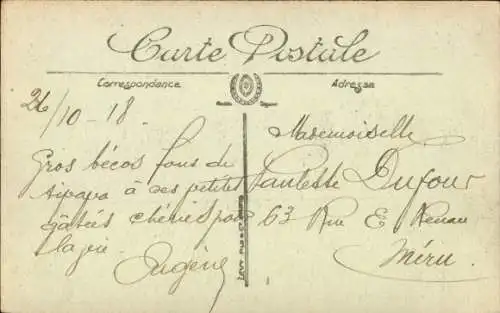 Carte Postale
Correspondance
Adresse
26/10-18.
Gros bécos fous de
à ses petites
gâtés chéries pour
la vie
Eugène
Mademoiselle
Paulette Dufour
63 Rue E Renan
Méru